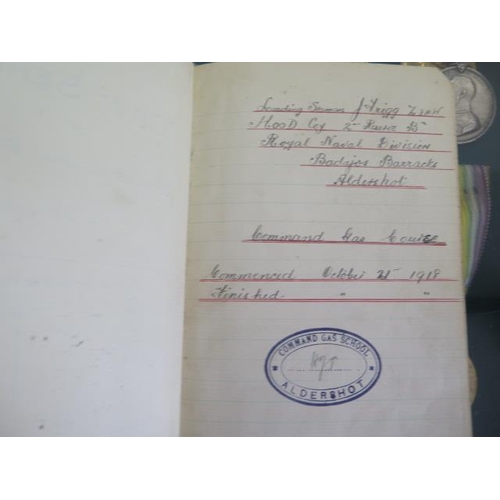 Leading Seaman J Trigg
Hood Coy 2nd Reserve Bn
Royal Naval Division
Badajos Barracks
Aldershot
Command Gas Course
Commenced October 21st 1918
Finished " "
COMMAND GAS SCHOOL
ALDERSHOT